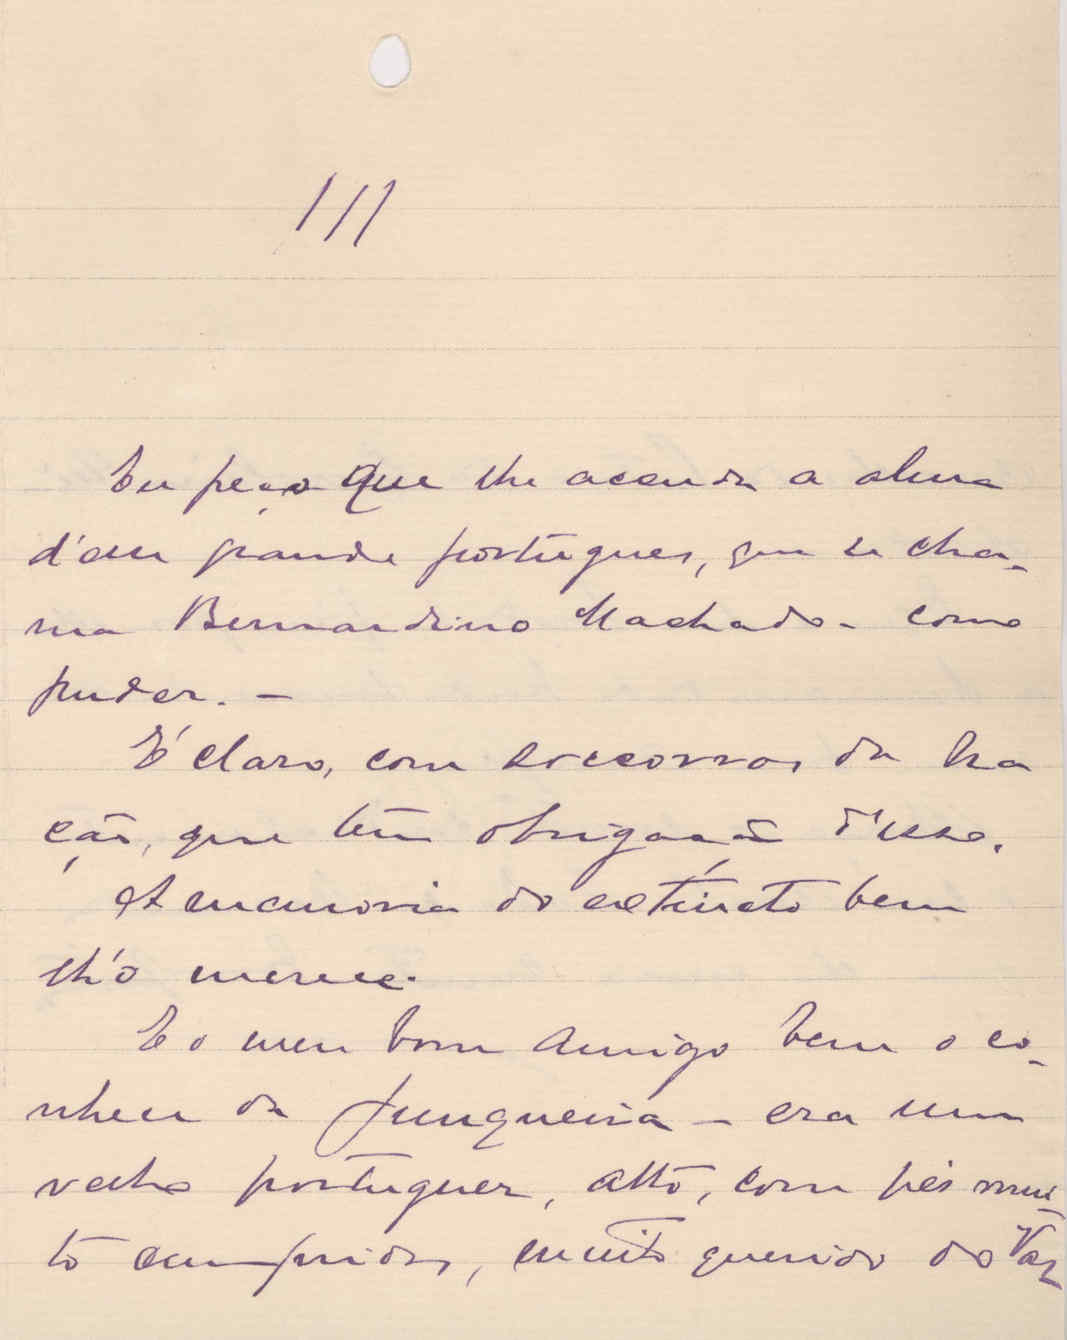 III
Eu peço que lhe acenda a alma
d'um grande portugues, que se cha-
ma Bernardino Machado - como
puder. -
É claro, com soccorros da Na
ção, que tem obrigação d'isso.
A memoria do extincto bem
lh'o merece.
E o meu bom amigo bem o co-
nheceu da Junqueira - era um
velho portuguez, alto, com pés mui
to compridos, muito querido do Vaz